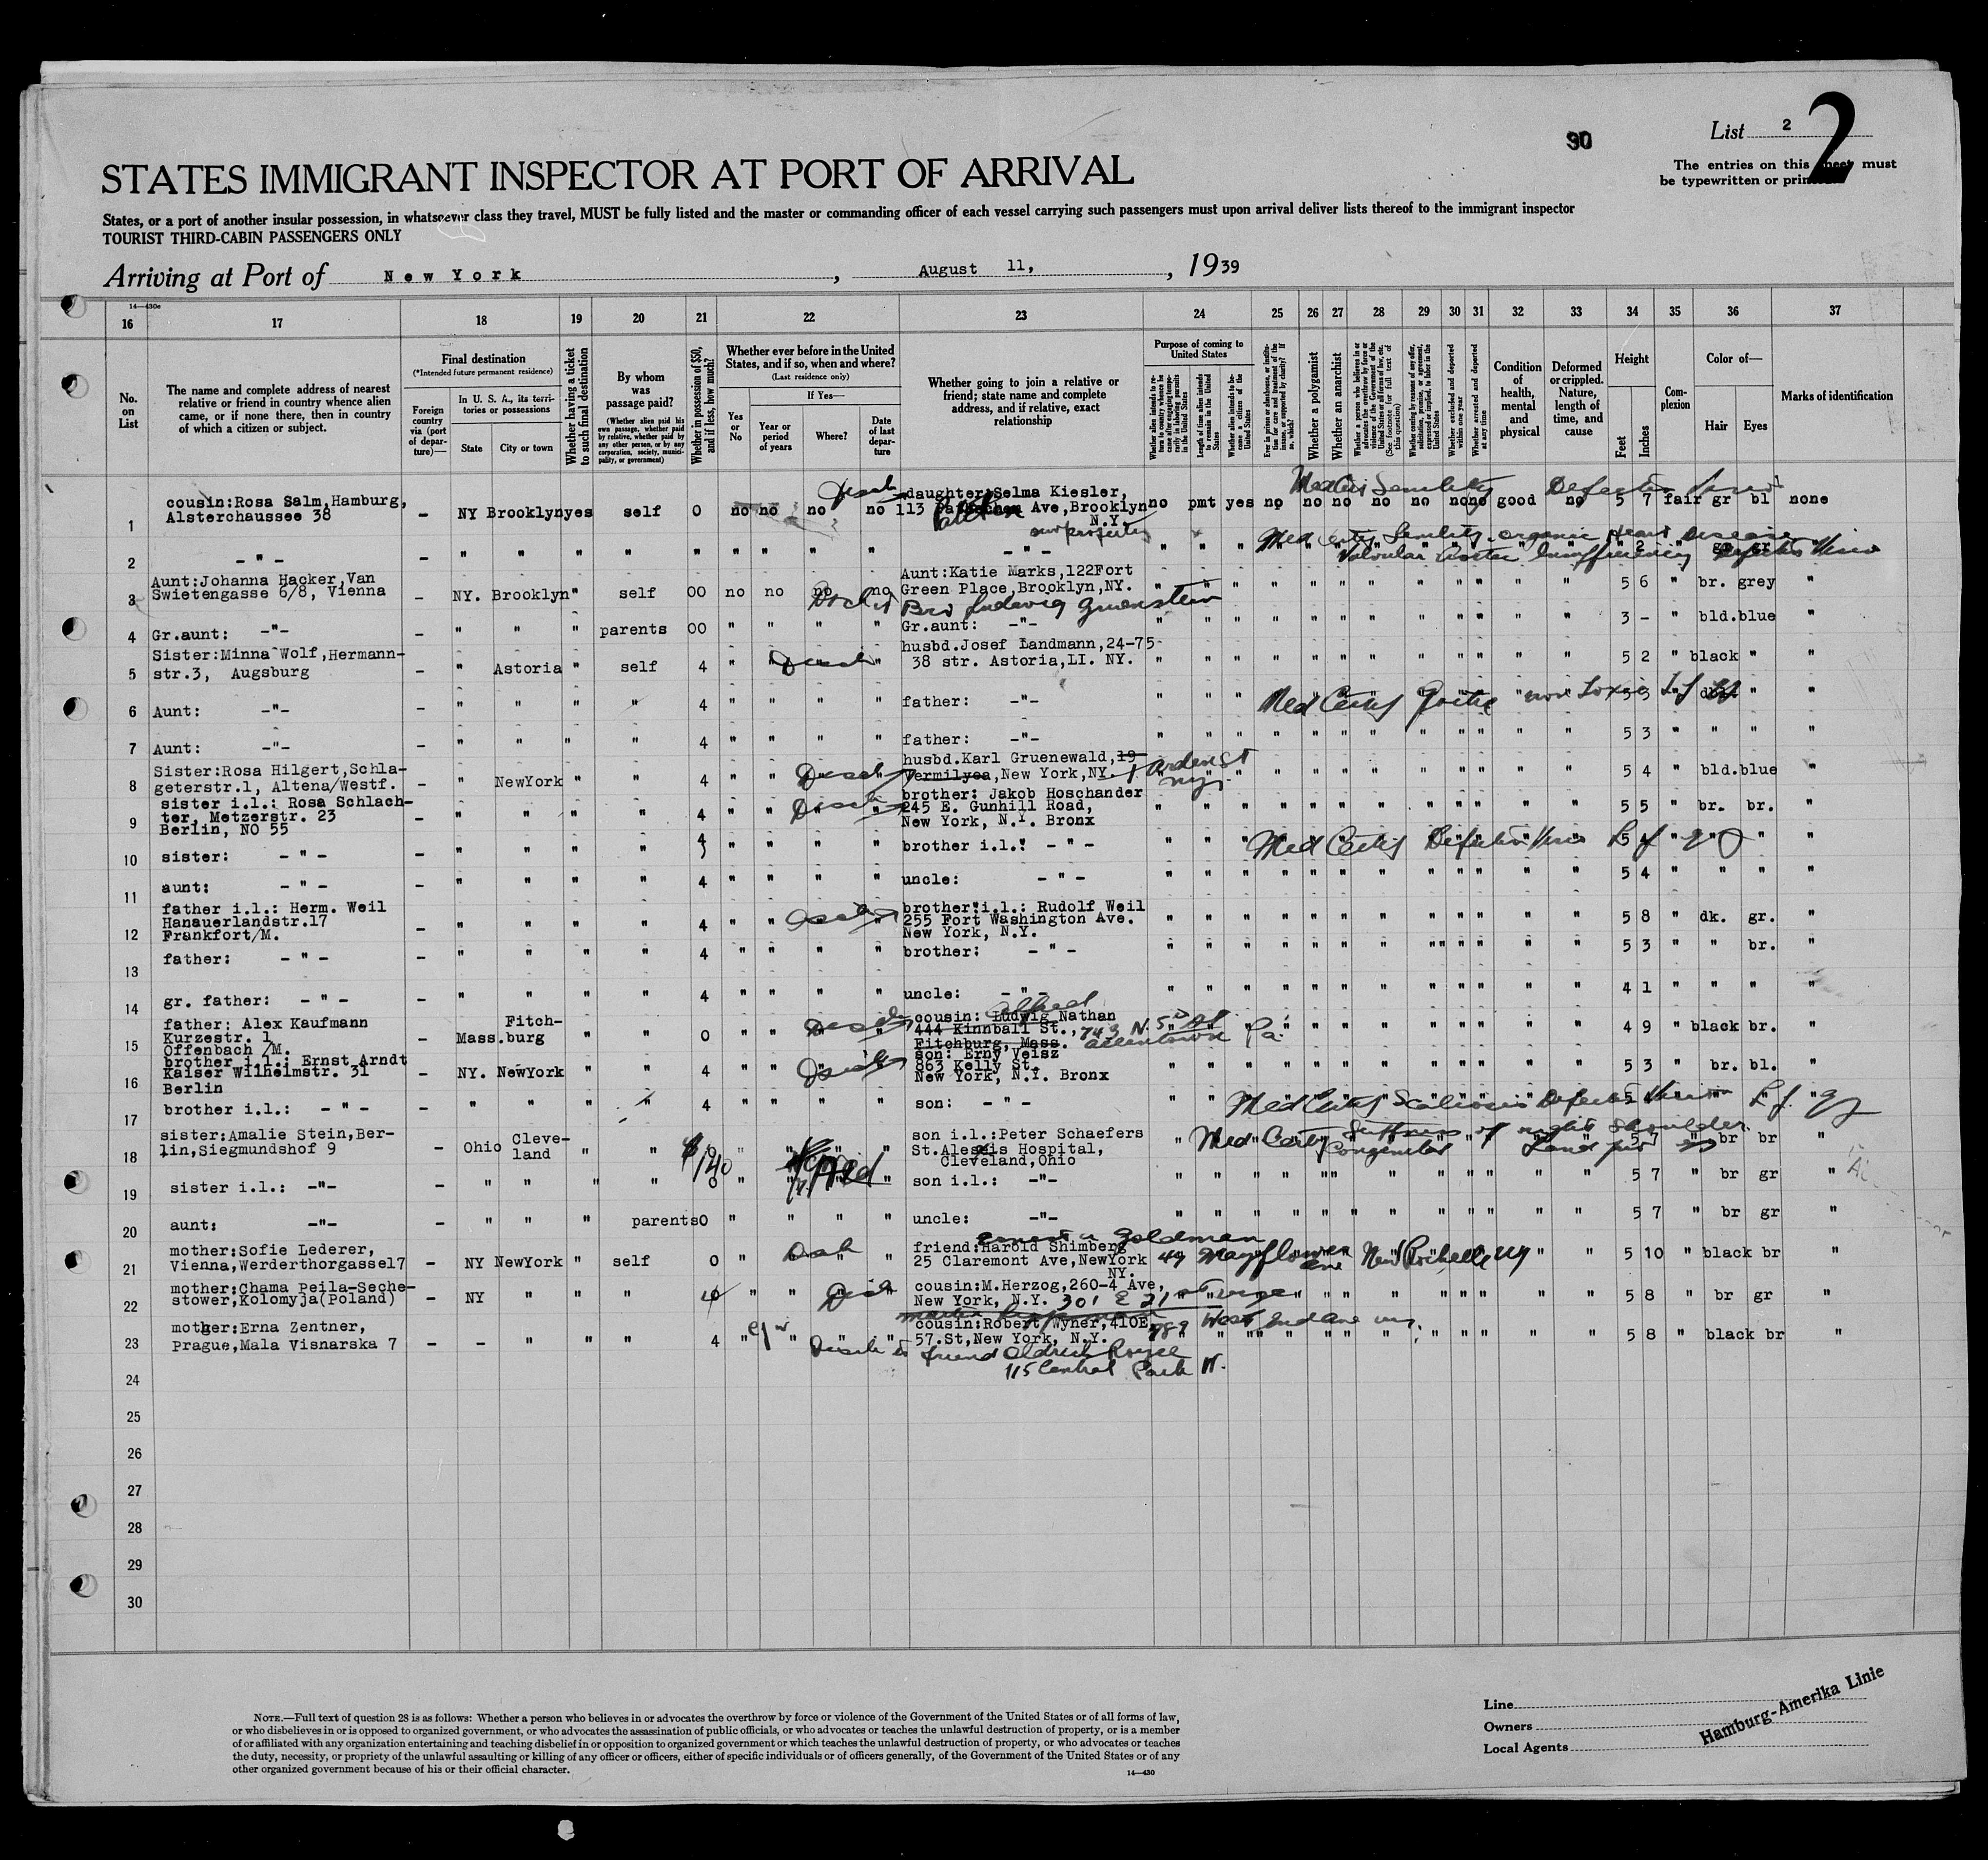 90
List 2
2
The entries on this sheet must
be typewritten or printed
STATES IMMIGRANT INSPECTOR AT PORT OF ARRIVAL
States, or a port of another insular possession, in whatsoever class they travel, MUST be fully listed and the master or commanding officer of each vessel carrying such passengers must upon arrival deliver lists thereof to the immigrant inspector
TOURIST THIRD-CABIN PASSENGERS ONLY
Arriving at Port of New York, August 11, 1939
14—430e
16 17 18 19 20 21 22 23 24 25 26 27 28 29 30 31 32 33 34 35 36 37
No. on List
The name and complete address of nearest relative or friend in country whence alien came, or if none there, then in country of which a citizen or subject.
Final destination
(*Intended future permanent residence)
Foreign country via (port of departure)—
In U. S. A., its territories or possessions
State City or town
Whether having a ticket to such final destination
By whom was passage paid?
(Whether alien paid his own passage, whether paid by relative, whether paid by any other person, or by any corporation, society, municipality, or government)
Whether in possession of $50, and if less, how much?
Whether ever before in the United States, and if so, when and where?
(Last residence only)
Yes or No
If Yes—
Year or period of years
Where?
Date of last departure
Whether going to join a relative or friend; state name and complete address, and if relative, exact relationship
Purpose of coming to United States
Length of time alien intends to remain in the United States
Whether alien intends to become a citizen of the United States
Whether a polygamist
Whether an anarchist
Whether excluded and deported within one year
Whether arrested and deported at any time
Condition of health, mental and physical
Deformed or crippled. Nature, length of time, and cause
Height
Feet Inches
Complexion
Color of—
Hair Eyes
Marks of identification
Med Certif Senility Defective Vision
1 cousin:Rosa Salm,Hamburg, Alsterchaussee 38 – NY Brooklyn yes self 0 no no no no daughter:Selma Kiesler, 113 Ave,Brooklyn N.Y. no pmt yes no no no no no no no good no 5 7 fair gr bl none
Med Certif Senility organic Heart Disease
Valvular Aortic Insufficiency Defective Vision
2 – " – – " " " " " " " " " – " – " " " " 2 " gr gr "
3 Aunt:Johanna Hacker,Van Swietengasse 6/8, Vienna – NY. Brooklyn " self 00 no no no no Aunt:Katie Marks,122Fort Green Place,Brooklyn,NY. " " " " " " 5 6 " br. grey "
Bro Ludwig Gruenstein
4 Gr.aunt: -"- – " " " parents 00 " " " " Gr.aunt: -"- " " " " " " 3 – " bld.blue "
5 Sister:Minna Wolf,Hermannstr.3, Augsburg – " Astoria " self 4 " " " husbd.Josef Landmann,24-75-38 str. Astoria,LI. NY. " " " " " " 5 2 " black " "
6 Aunt: -"- – " " " " 4 " " " " father: -"- " " " Med Certif Goitre non Toxic 5 3 " "
7 Aunt: -"- – " " " " 4 " " " " father: -"- " " " " " " 5 3 " " " "
8 Sister:Rosa Hilgert,Schlageterstr.1, Altena/Westf. – " NewYork " " 4 " " " husbd.Karl Gruenewald,19 Vermilyea,New York,NY. Arden St " " " " 5 4 " bld.blue "
9 sister i.l.: Rosa Schlachter, Metzerstr. 23 Berlin, NO 55 – " " " " 4 " " " brother: Jakob Hoschander 245 E. Gunhill Road, New York, N.Y. Bronx " " " " " " 5 5 " br. br. "
10 sister: – " – – " " " " 4 " " " " brother i.l.: – " – " " " Med Certif Defective Vision 5 4 " " "
11 aunt: – " – – " " " " 4 " " " " uncle: – " – " " " " " " 5 4 " " " "
12 father i.l.: Herm. Weil Hanauerlandstr.17 Frankfort/M. – " " " " 4 " " " brother i.l.: Rudolf Weil 255 Fort Washington Ave. New York, N.Y. " " " " " " 5 8 " dk. gr. "
13 father: – " – – " " " " 4 " " " " brother: – " – " " " " " " 5 3 " " br. "
14 gr. father: – " – – " " " " 4 " " " " uncle: – " – " " " " " " 4 1 " " " "
15 father: Alex Kaufmann Kurzestr. 1 Offenbach /M. – Mass. Fitchburg " " 0 " " " cousin: Ludwig Nathan Alfred 444 Kinnball St., Fitchburg, Mass. 743 N. 5th St Allentown Pa. " " " " 4 9 " black br. "
16 brother i.l.: Ernst Arndt Kaiser Wilhelmstr. 31 Berlin – NY. NewYork " " 4 " " " son: Erny Veisz 863 Kelly St. New York, N.Y. Bronx " " " " " " 5 3 " br. bl. "
17 brother i.l.: – " – – " " " " 4 " " " " son: – " – " " Med Certif Scoliosis Defective Vision
18 sister:Amalie Stein,Berlin,Siegmundshof 9 – Ohio Cleveland " " 0 $140 " " son i.l.:Peter Schaefers St.Alexis Hospital, Cleveland,Ohio " Med Certif Stiffness of right shoulder Congenital 5 7 " br br "
19 sister i.l.: -"- – " " " " 0 " " " " son i.l.: -"- " " " " " " 5 7 " br gr "
20 aunt: -"- – " " " parents 0 " " " " uncle: -"- " " " " " " 5 7 " br gr "
21 mother:Sofie Lederer, Vienna,Werderthorgasse17 – NY NewYork " self 0 " " " Ernest Goldman friend:Harold Shimberg 25 Claremont Ave,NewYork NY. 49 Mayflower Ave New Rochelle NY " " 5 10 " black br "
22 mother:Chama Peila-Sechestower,Kolomyja(Poland) – NY " " " 4 " " " cousin:M.Herzog,260-4 Ave, New York, N.Y. 301 E 21 St " " " " 5 8 " br gr "
23 mother:Erna Zentner, Prague,Mala Visnarska 7 – – " " " 4 " " " " cousin:Robert Wyner,410E. 57.St,New York, N.Y. 789 West End Ave " " " " 5 8 " black br "
friend Oldrich Royce
115 Central Park W.
24
25
26
27
28
29
30
NOTE.—Full text of question 28 is as follows: Whether a person who believes in or advocates the overthrow by force or violence of the Government of the United States or of all forms of law,
or who disbelieves in or is opposed to organized government, or who advocates the assassination of public officials, or who advocates or teaches the unlawful destruction of property, or is a member
of or affiliated with any organization entertaining and teaching disbelief in or opposition to organized government or which teaches the unlawful destruction of property, or who advocates or teaches
the duty, necessity, or propriety of the unlawful assaulting or killing of any officer or officers, either of specific individuals or of officers generally, of the Government of the United States or of any
other organized government because of his or their official character.
14—430
Line
Owners
Local Agents
Hamburg-Amerika Linie